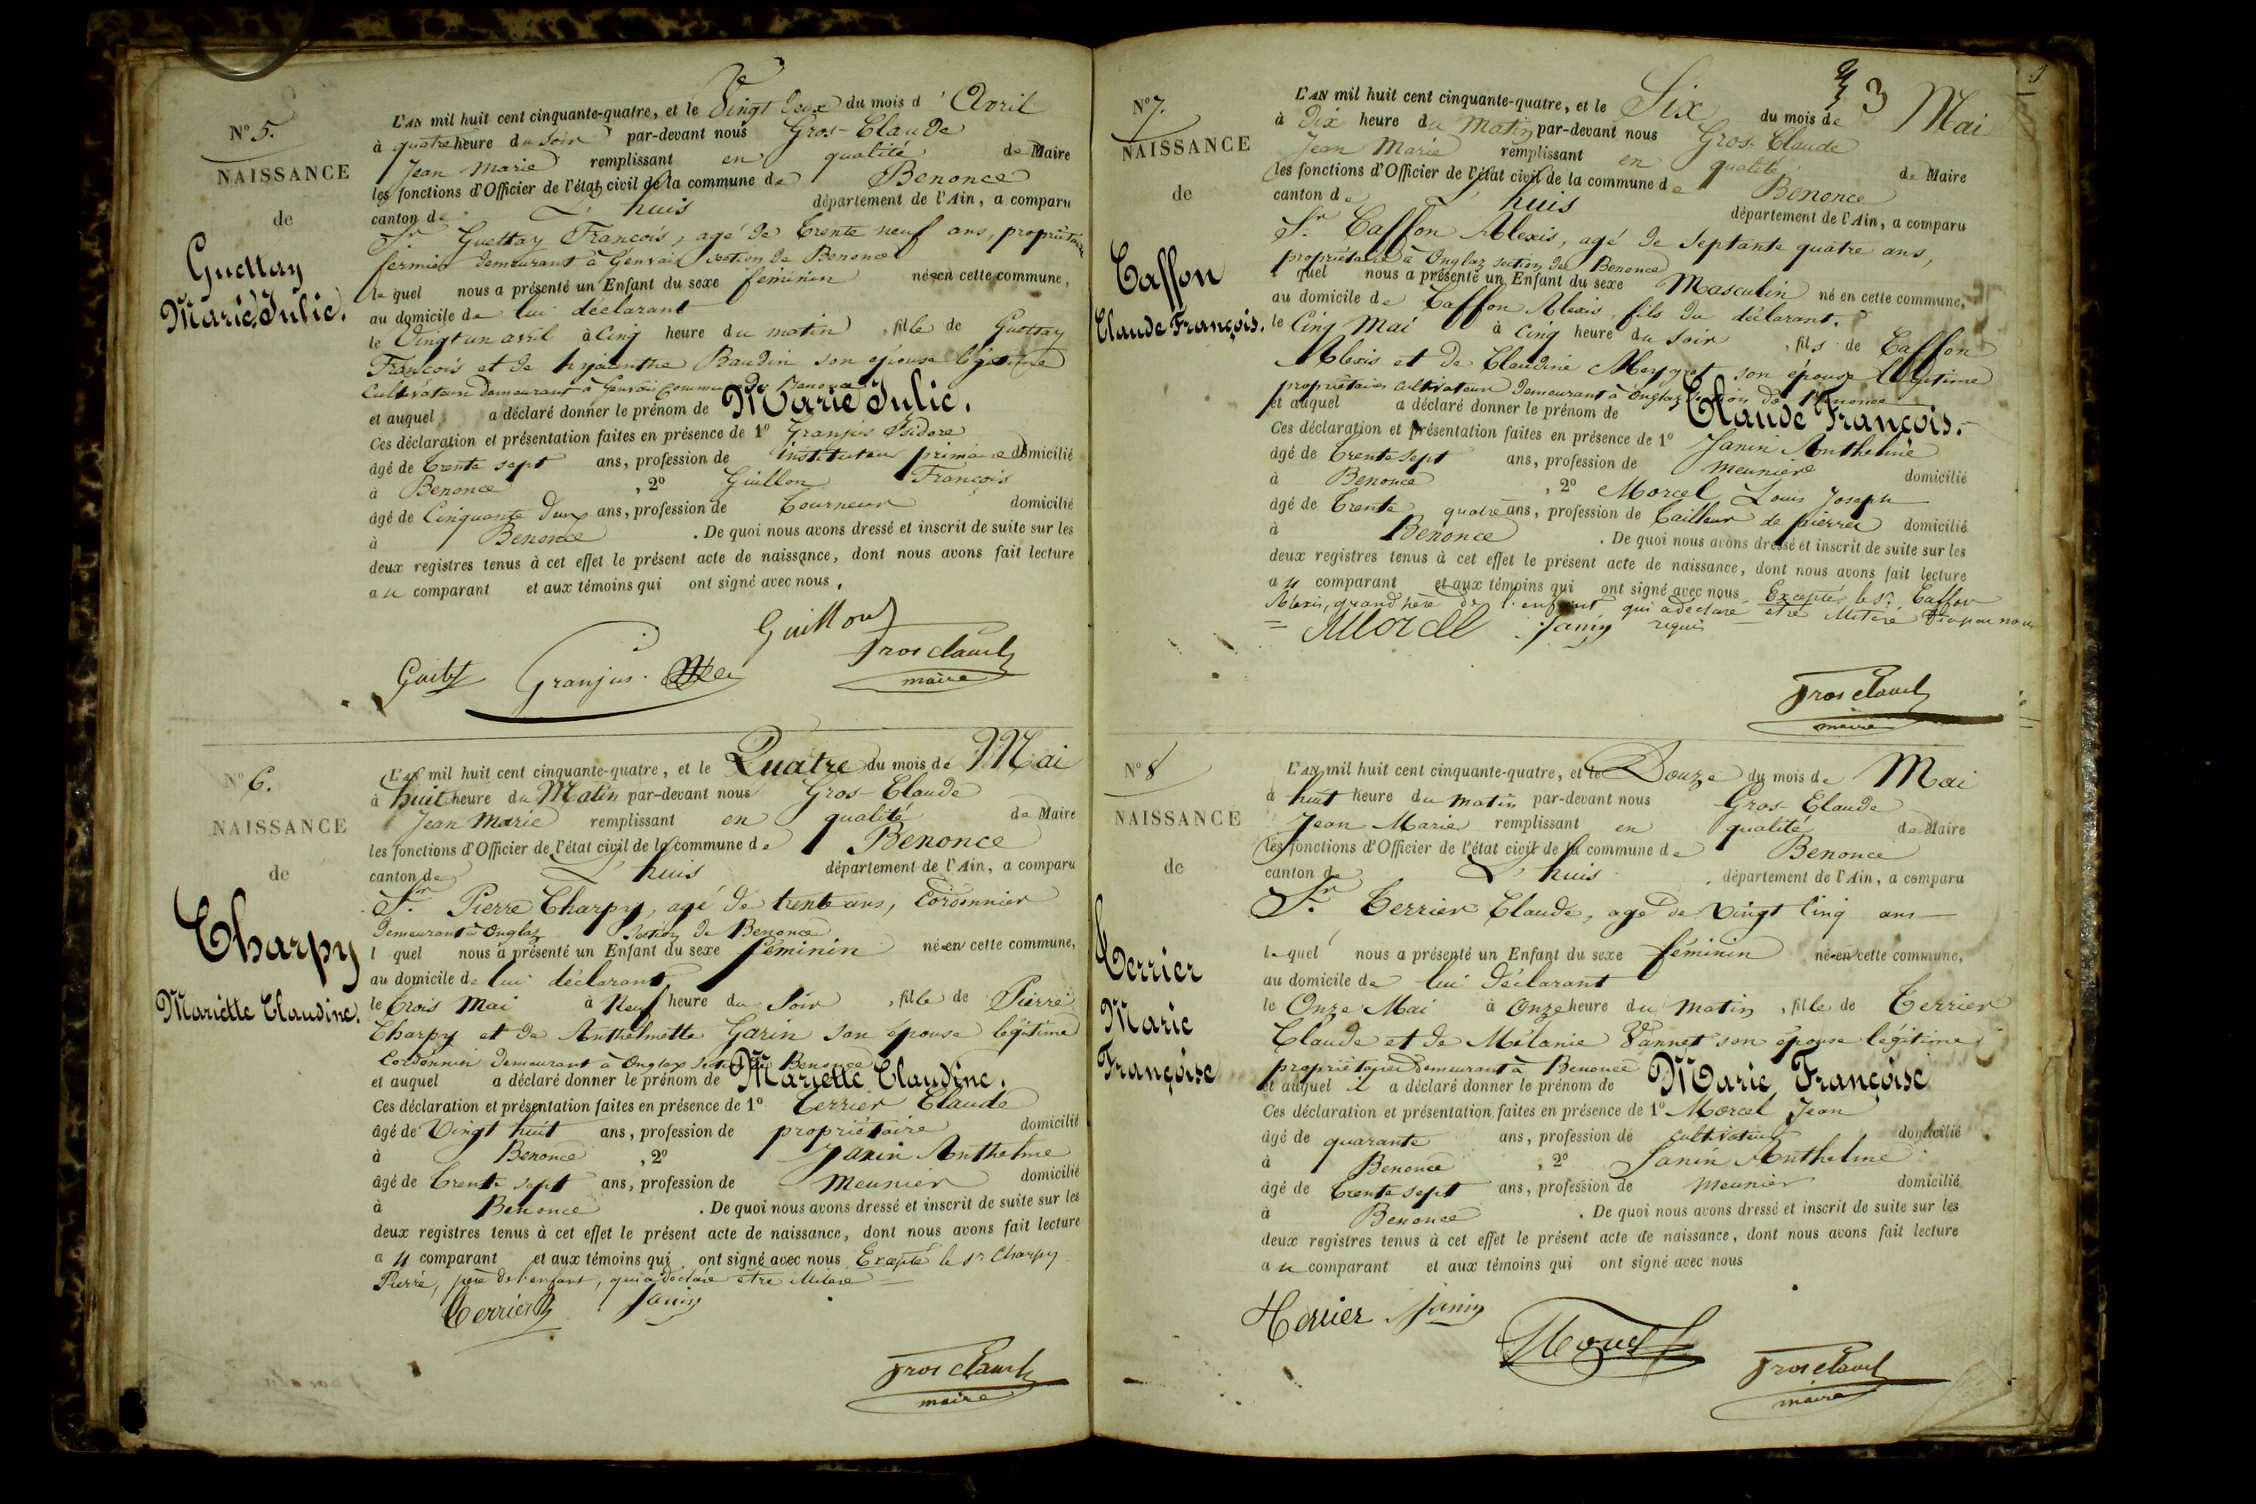 N° 5.
NAISSANCE
de
Guettay
Marie Julie.
L'AN mil huit cent cinquante-quatre, et le Vingt deux du mois d'Avril
à quatre heure du soir par-devant nous Gros-Claude
Jean Marie remplissant en qualité de Maire
les fonctions d'Officier de l'état civil de la commune de Benonce
canton de L'huis département de l'Ain, a comparu
Sr Guettay François, agé de trente neuf ans, propriétaire
fermier demeurant à Genvais section de Benonce
lequel nous a présenté un Enfant du sexe féminin né en cette commune,
au domicile de lui déclarant
le Vingt un avril à Cinq heure du matin, fille de Guettay
François et de hyacinthe Baudin son épouse légitime
Cultivateur demeurant à Genvais commune de Benonce
et auquel a déclaré donner le prénom de Marie Julie.
Ces déclaration et présentation faites en présence de 1° Granjus Isidore
âgé de trente sept ans, profession de Instituteur primaire domicilié
à Benonce, 2° Guillon François
âgé de Cinquante deux ans, profession de Tourneur domicilié
à Benonce. De quoi nous avons dressé et inscrit de suite sur les
deux registres tenus à cet effet le présent acte de naissance, dont nous avons fait lecture
au comparant et aux témoins qui ont signé avec nous.
Guillon
Groscland
maire
Granjus
N° 6.
NAISSANCE
de
Charpy
Mariette Claudine.
L'AN mil huit cent cinquante-quatre, et le Quatre du mois de Mai
à huit heure du Matin par-devant nous Gros-Claude
Jean Marie remplissant en qualité de Maire
les fonctions d'Officier de l'état civil de la commune de Benonce
canton de L'huis département de l'Ain, a comparu
Sr. Pierre Charpy, agé de trente ans, Cordonnier
demeurant à Onglaz section de Benonce
l quel nous a présenté un Enfant du sexe féminin né en cette commune,
au domicile de lui déclarant
le trois Mai à Neuf heure du Soir, fille de Pierre
Charpy et de Anthelmette Garin son épouse légitime
Cordonnier demeurant à Onglax section de Benonce
et auquel a déclaré donner le prénom de Mariette Claudine.
Ces déclaration et présentation faites en présence de 1° Terrier Claude
âgé de Vingt huit ans, profession de propriétaire domicilié
à Benonce, 2° Janin Anthelme
âgé de trente sept ans, profession de Meunier domicilié
à Benonce. De quoi nous avons dressé et inscrit de suite sur les
deux registres tenus à cet effet le présent acte de naissance, dont nous avons fait lecture
au comparant et aux témoins qui ont signé avec nous Excepté le Sr Charpy
Pierre, père de l'enfant, qui a déclaré etre illitéré
Terrier Janin
Groscland
maire
3
N° 7.
NAISSANCE
de
Caffon
Claude François.
L'AN mil huit cent cinquante-quatre, et le Six du mois de Mai
à dix heure du Matin par-devant nous Gros-Claude
Jean Marie remplissant en qualité de Maire
les fonctions d'Officier de l'état civil de la commune de Benonce
canton de L'huis département de l'Ain, a comparu
Sr. Caffon Alexis, agé de Septante quatre ans,
propriétaire à Onglaz section de Benonce
l quel nous a présenté un Enfant du sexe Masculin né en cette commune,
au domicile de Caffon Alexis, fils du déclarant.
le Cinq Mai à Cinq heure du soir, fils de Caffon
Alexis et de Claudine son épouse légitime
propriétaires cultivateur demeurant à Onglaz section de Benonce
et auquel a déclaré donner le prénom de Claude François.
Ces déclaration et présentation faites en présence de 1° Janin Anthelme
âgé de trente sept ans, profession de Meunier domicilié
à Benonce, 2° Morcel Louis Joseph
âgé de trente quatre ans, profession de Tailleur de pierres domicilié
à Benonce. De quoi nous avons dressé et inscrit de suite sur les
deux registres tenus à cet effet le présent acte de naissance, dont nous avons fait lecture
au comparant et aux témoins qui ont signé avec nous Excepté le Sr. Caffon
Alexis, grand père de l'enfant qui a déclaré etre illitéré
Morcel Janin requis
Groscland
maire
N° 8
NAISSANCE
de
Terrier
Marie
Françoise
L'AN mil huit cent cinquante-quatre, et le Douze du mois de Mai
à huit heure du matin par-devant nous Gros-Claude
Jean Marie remplissant en qualité de Maire
les fonctions d'Officier de l'état civil de la commune de Benonce
canton de L'huis département de l'Ain, a comparu
Sr. Terrier Claude, agé de Vingt Cinq ans
lequel nous a présenté un Enfant du sexe féminin né en cette commune,
au domicile de lui déclarant
le Onze Mai à Onze heure du matin, fille de Terrier
Claude et de Mélanie Vannet son épouse légitime
propriétaires demeurant à Benonce
et auquel il a déclaré donner le prénom de Marie Françoise
Ces déclaration et présentation faites en présence de 1° Morcel Jean
âgé de quarante ans, profession de cultivateur domicilié
à Benonce, 2° Janin Anthelme
âgé de trente sept ans, profession de Meunier domicilié
à Benonce. De quoi nous avons dressé et inscrit de suite sur les
deux registres tenus à cet effet le présent acte de naissance, dont nous avons fait lecture
au comparant et aux témoins qui ont signé avec nous
Terrier Janin
Morcel
Groscland
maire